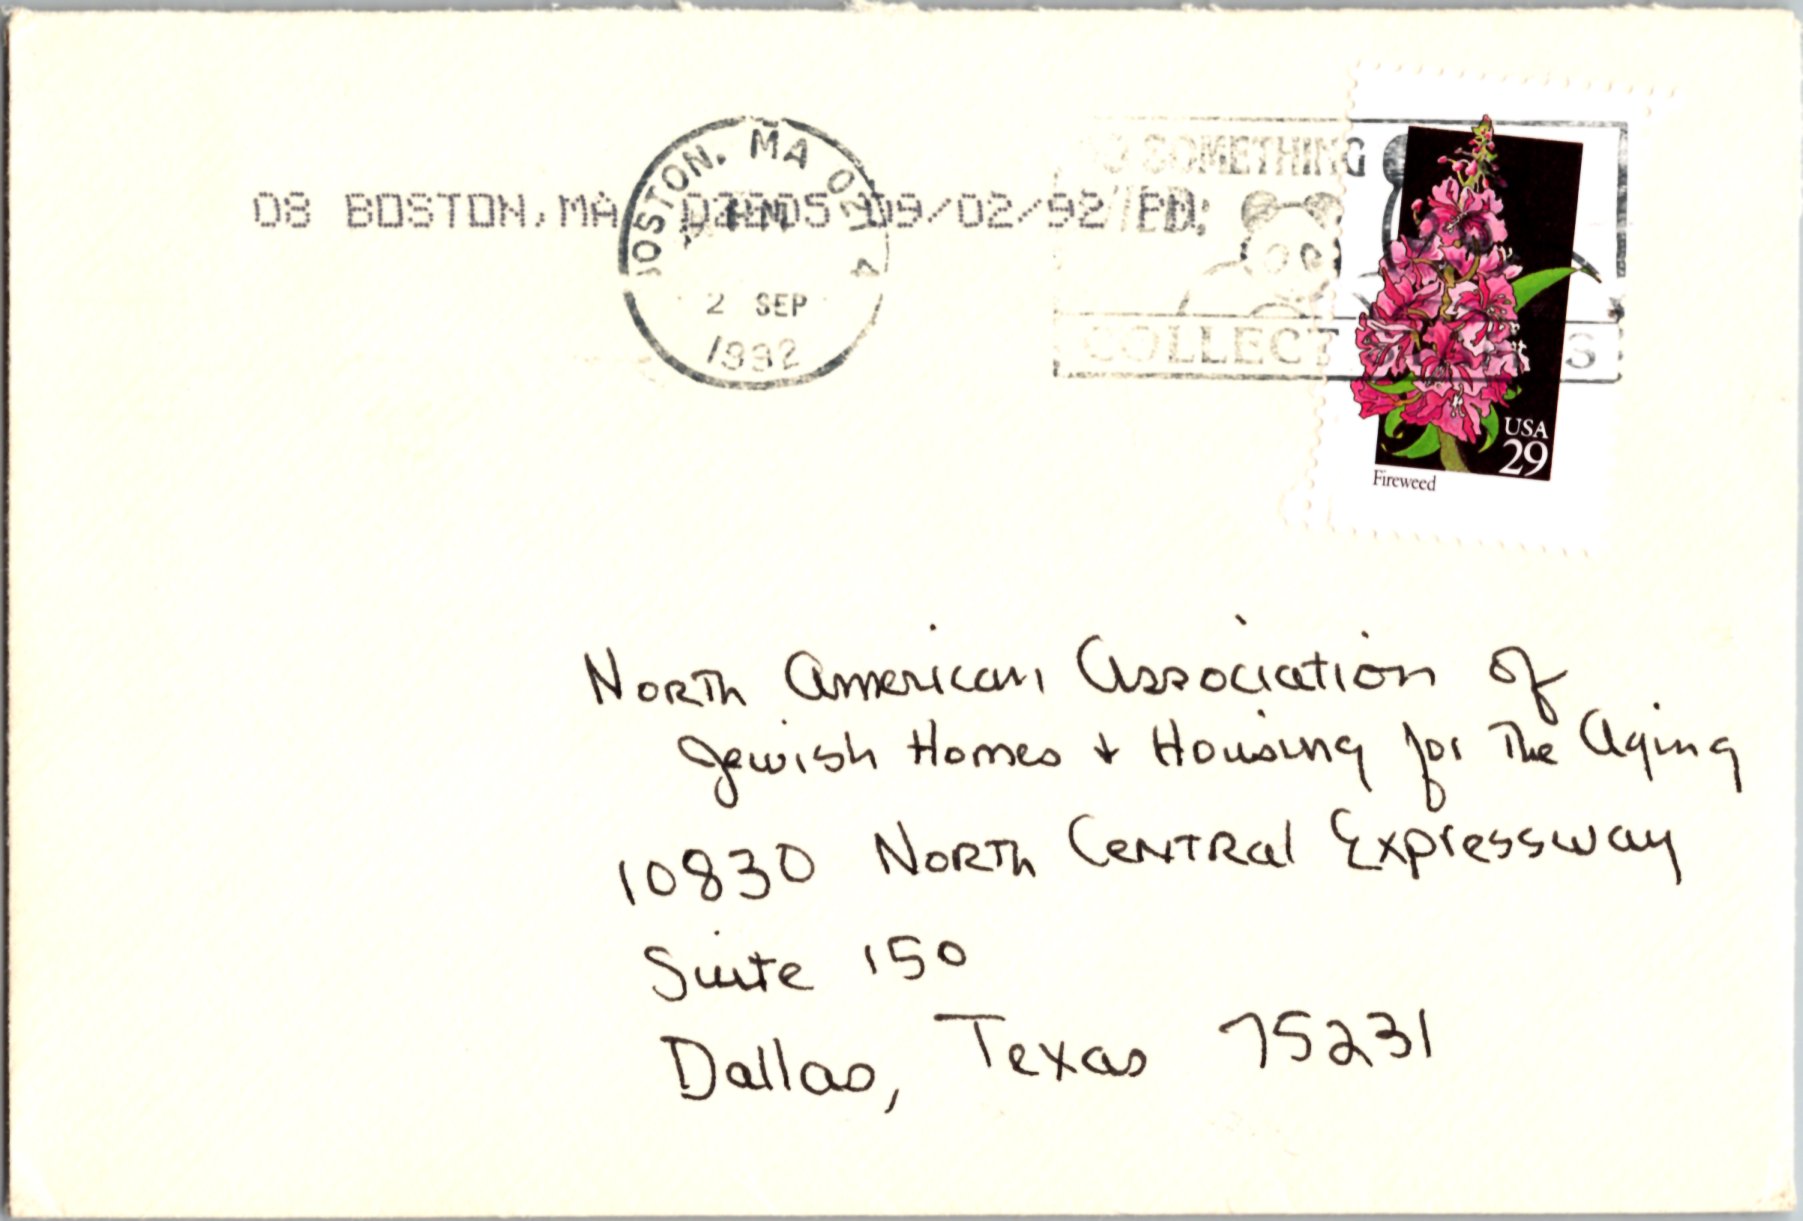 BOSTON, MA 021 4
PM
2 SEP
1992
08 BOSTON, MA 09/02/92
SOMETHING
COLLECT S
USA
29
Fireweed
North American Association of
Jewish Homes + Housing for The Aging
10830 North Central Expressway
Suite 150
Dallas, Texas 75231